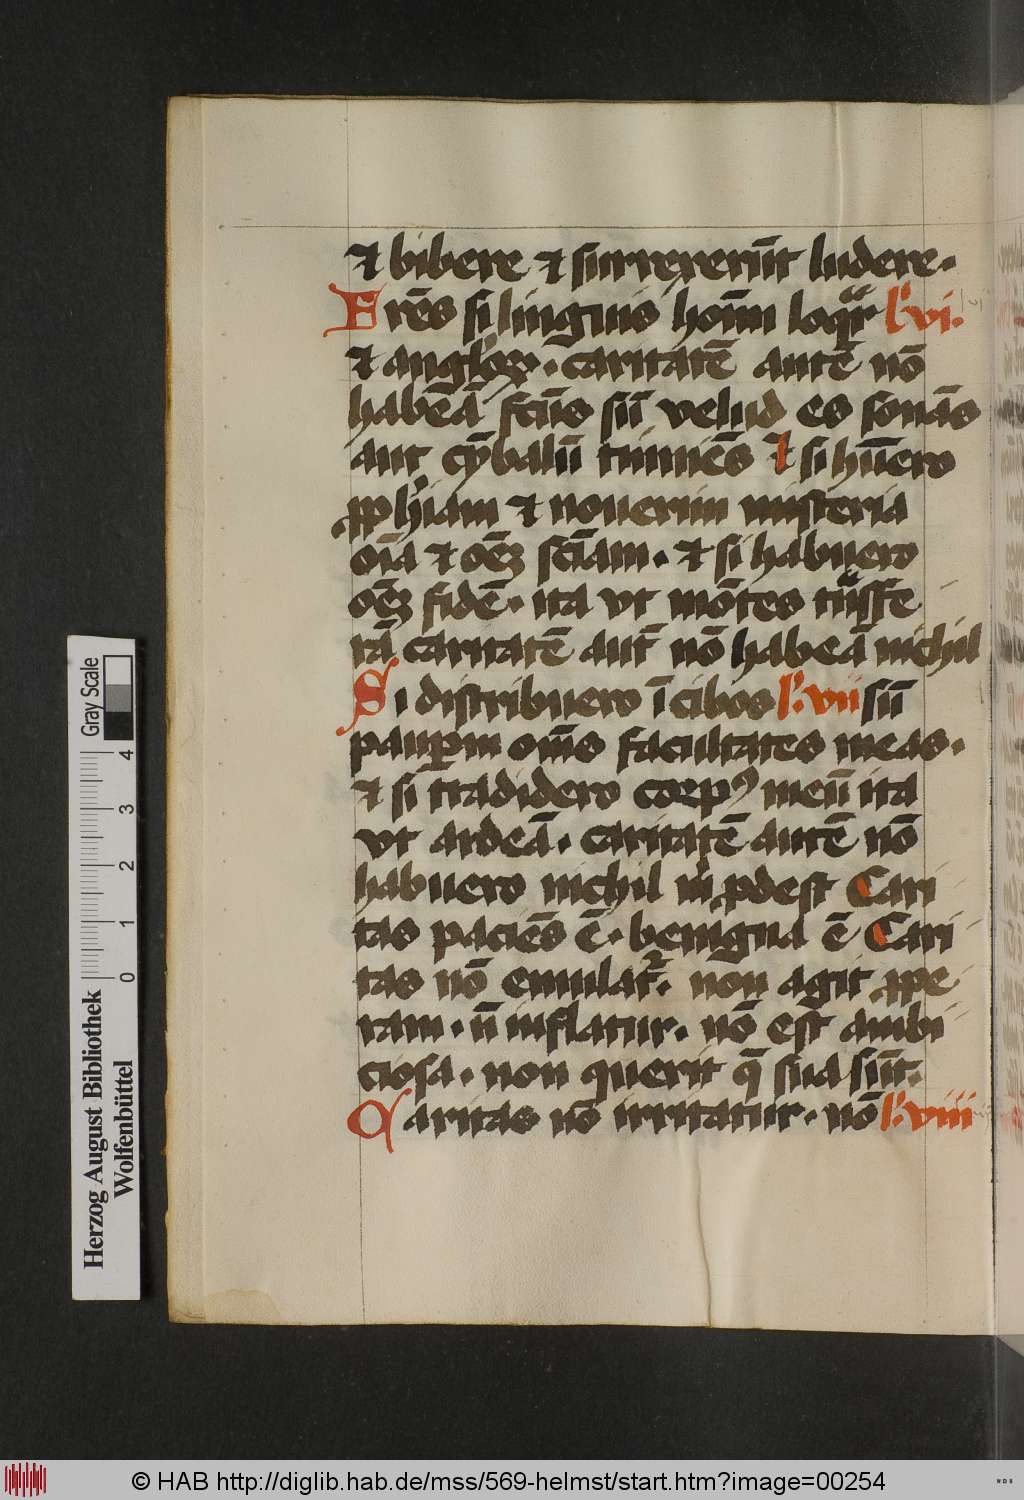 ⁊ bibere ⁊ surrexerūt ludere.
Frēs si linguis hoīm loqͣr lͦ.vi.
⁊ angloꝝ. caritatē autē nō
habeā fctūs sū velud es sonās
aut cȳbalū tinniēs Et si hūero
ꝓphiam ⁊ nouerim misteria
oīa ⁊ oēꝫ sciām. ⁊ si habuero
oēꝫ fidē. ita vt mōtes tͣnsfe
rā caritatē aut̄ nō habeā nichil
Si distribuero ī cibos lͦ.vii sū
pauꝑum om̄s facultates meas.
⁊ si tradidero corpꝰ meū ita
vt ardeā. caritatē autē nō
habuero nichil m̄ ꝓdest Cari
tas paciēs ē. benigna ē Cari
tas nō emulat᷑. non agit ꝑpe
ram. n̄ inflatur. nō est ambi
ciosa. non querit q̄ sua sūt.
Caritas nō irritatur. nō lͦ.viii
Herzog August Bibliothek
Wolfenbüttel
0 1 2 3 4
Gray Scale
© HAB http://diglib.hab.de/mss/569-helmst/start.htm?image=00254